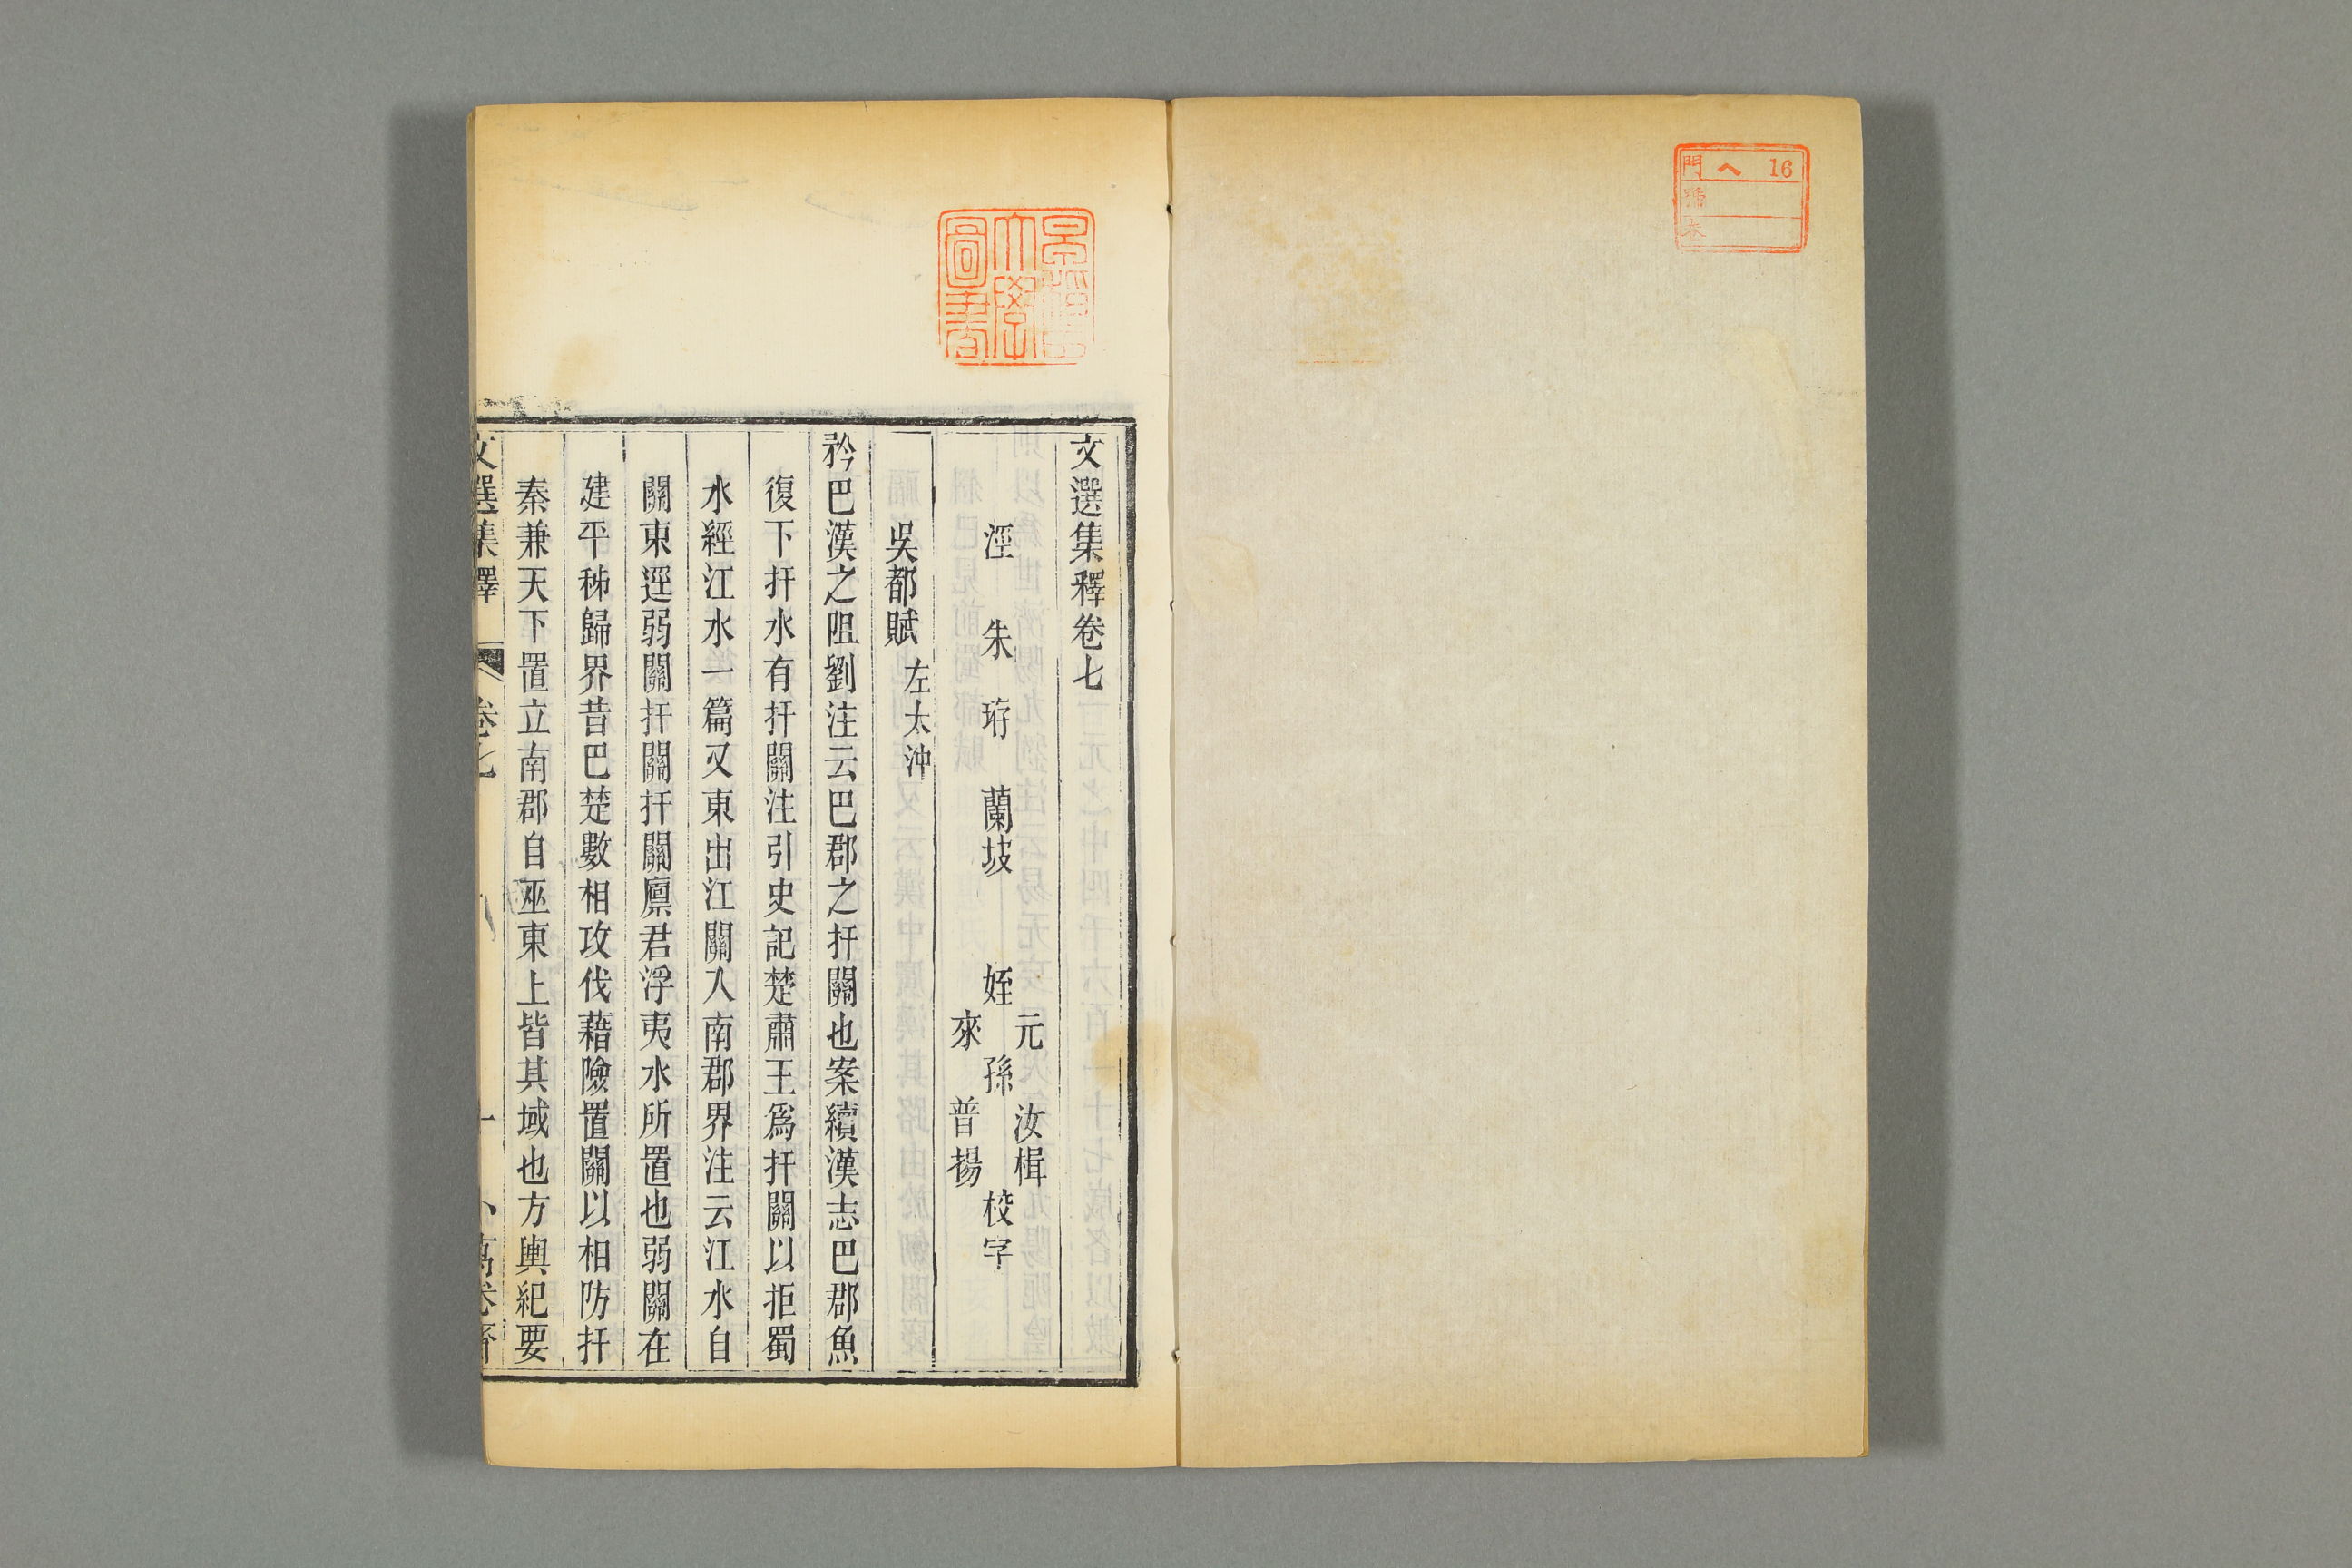 門 ヘ 16
番
文選集釋卷七
涇 朱珔 蘭坡 姪 元 來 孫 汝楫 普揚 校字
吳都賦 左太沖
矜巴漢之阻劉注云巴郡之扞關也案續漢志巴郡魚
復下扞水有扞關注引史記楚肅王爲扞關以拒蜀
水經江水一篇又東出江關入南郡界注云江水自
關東逕弱關扞關扞關廩君浮夷水所置也弱關在
建平秭歸界昔巴楚數相攻伐藉險置關以相防扞
秦兼天下置立南郡自巫東上皆其域也方輿紀要
文選集釋 卷七 一 小萬卷齋